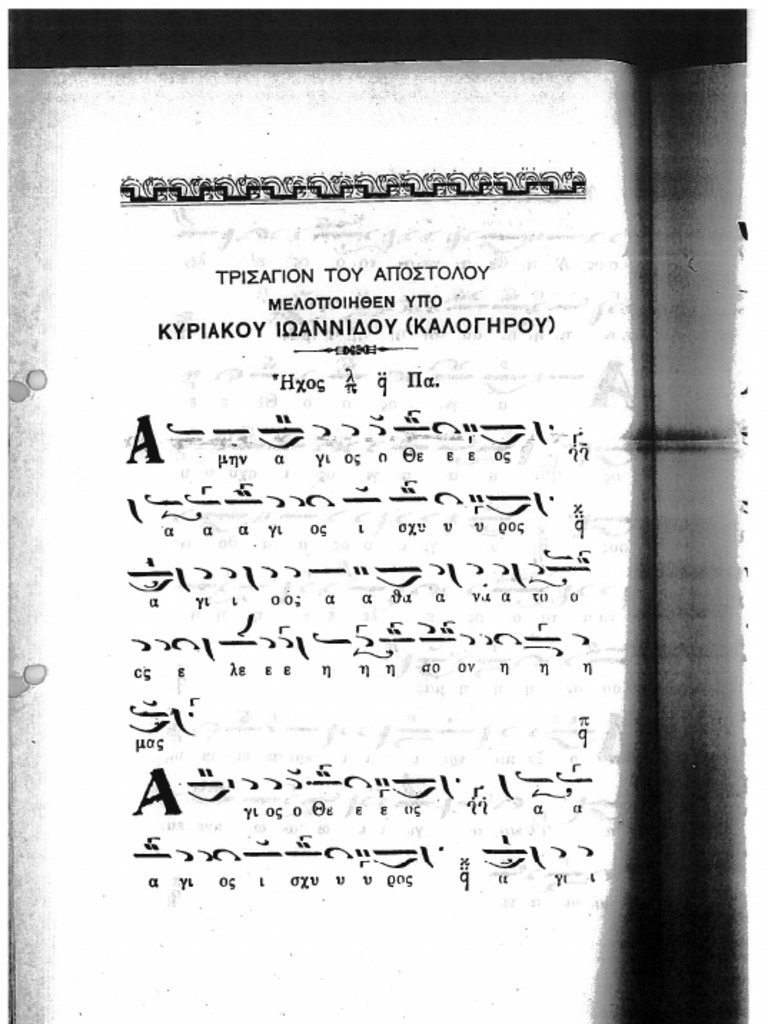 ΤΡΙΣΑΓΙΟΝ ΤΟΥ ΑΠΟΣΤΟΛΟΥ
ΜΕΛΟΠΟΙΗΘΕΝ ΥΠΟ
ΚΥΡΙΑΚΟΥ ΙΩΑΝΝΙΔΟΥ (ΚΑΛΟΓΗΡΟΥ)
Ἦχος λ π q Πα.
Α μην α γι ος ο Θε ε ε ος
α α α γι ος ι σχυ υ υ ρος
α γι ι ο ος α α θα α να α το ο
ος ε λε ε ε η η η σο ον η η η
μας
Α γι ος ο Θε ε ε ος α α
α γι ος ι σχυ υ υ ρος α γι ι